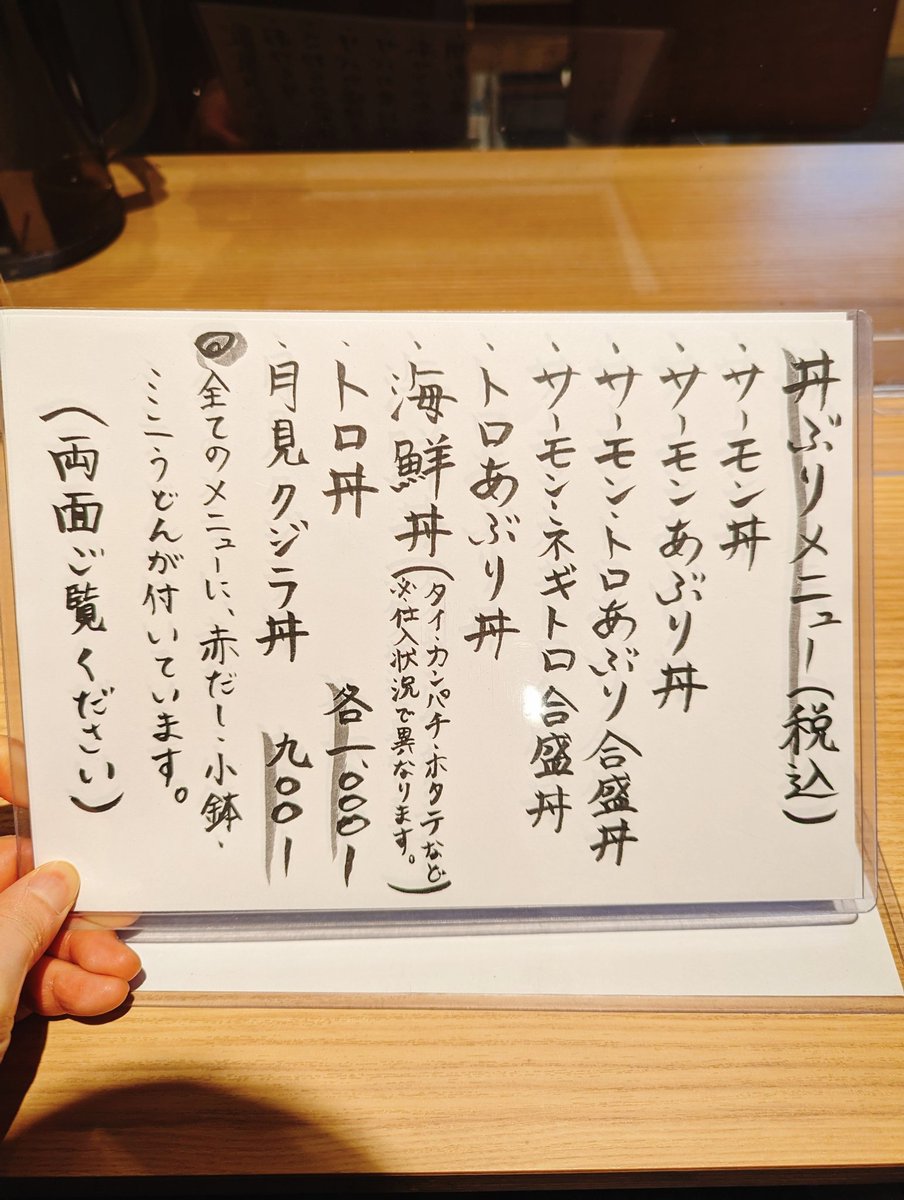 丼ぶりメニュー(税込)
・サーモン丼
・サーモンあぶり丼
・サーモン・トロあぶり合盛丼
・サーモン・ネギトロ合盛丼
・トロあぶり丼
・海鮮丼(タイ・カンパチ・ホタテなど
※仕入状況で異なります。)
・トロ丼 各一、〇〇〇ー
・月見クジラ丼 九〇〇ー
◎全てのメニューに、赤だし・小鉢・
ミニうどんが付いています。
(両面ご覧ください)